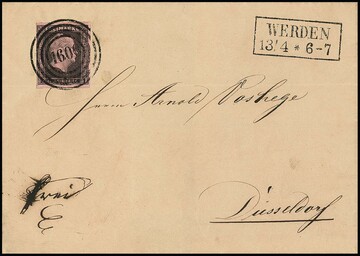 1608
WERDEN
13/4 * 6-7
Herrn Arnold Poshege
frei
Düsseldorf